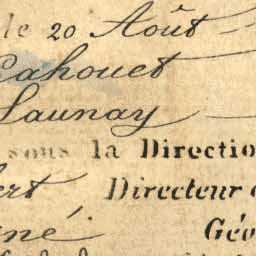 le 20 Août
Cahouet
Launay
sous la Directio
bert Directeur
né Géo